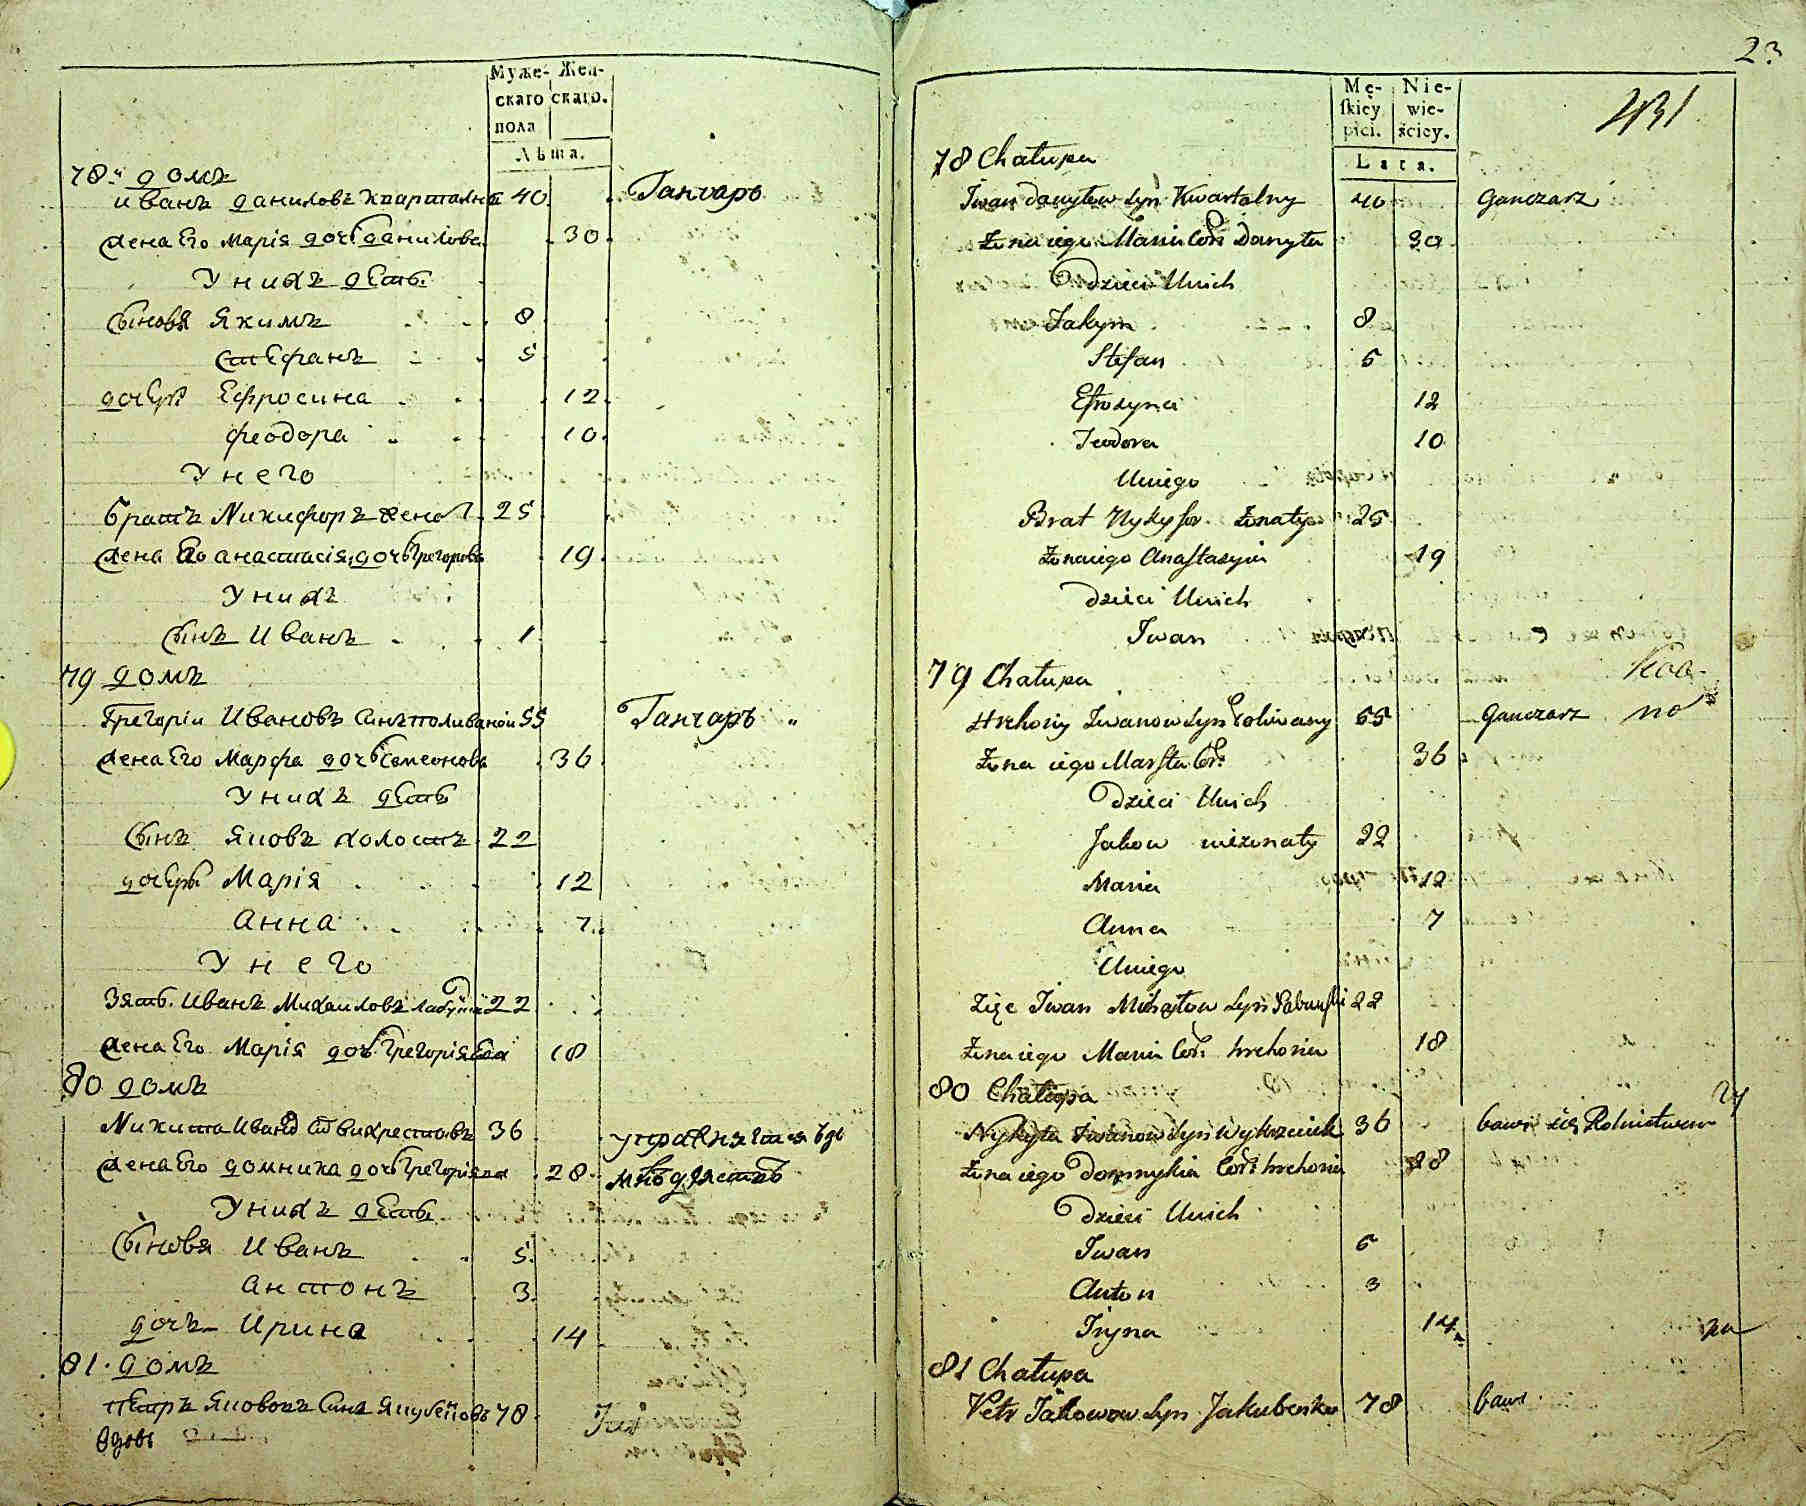 Муже- Жен-
скаго скаго.
пола
Лѣта.
78й домъ
Иванъ Даниловъ Квартална 40 Ганчаръ
Жена Его Марія дочь Данилова 30
У нихъ дѣти
Сыновя Якимъ 8
Стефанъ 5
дочери Ефросина 12
Феодора 10
У него
Братъ Никифоръ женат 25
Жена Его Анастасія дочь Грегорова 19
У нихъ
Сынъ Иванъ 1
79 домъ
Грегорій Ивановъ Синъ Поливаной 55 Ганчаръ
Жена Его Марфа дочь Семенова 36
У нихъ дѣти
Сынъ Яковъ холостъ 22
дочери Марія 12
Анна 7
У него
Зять Иванъ Михаиловъ 22
Жена Его Марія дочь Грегоріева 18
80 домъ
Никита Иванов Викрестовъ 36
Жена Его Домника дочь Грегоріева 28
У нихъ дѣти
Сыновя Иванъ 5
Антонъ 3
дочь Ирина 14
81 домъ
Петръ Якововъ Синъ 78
Вдовъ
23
431
Mę- Nie-
skiey wie-
płci. ściey.
Lata.
78 Chałupa
Iwan Danyłow Syn Kwartalny 40 Ganczarz
Żona iego Maria Cór. Danyła 30
Dzieci Unich
Jakym 8
Stefan 5
Efrozyna 12
Teodora 10
Uniego
Brat Nykyfor Żonaty 25
Żona iego Anastazyia 19
Dzieci Unich
Iwan
79 Chałupa
Hrehoriy Iwanow Syn Poliwany 55 Ganczarz
Żona iego Marfta Cór. 36
Dzieci Unich
Jakow nieżonaty 22
Maria 12
Anna 7
Uniego
Zięc Iwan Michajłow Syn 22
Żona iego Maria Cór. Hrehoria 18
80 Chałupa
Nykyta Iwanow Syn Wykrzciuk 36 bawi się Rolnictwem
Żona iego Domnykia Cór. Hrehoria 28
Dzieci Unich
Iwan 5
Anton 3
Iryna 14
81 Chałupa
Petr Jakowow Syn Jakubenko 78 bawi